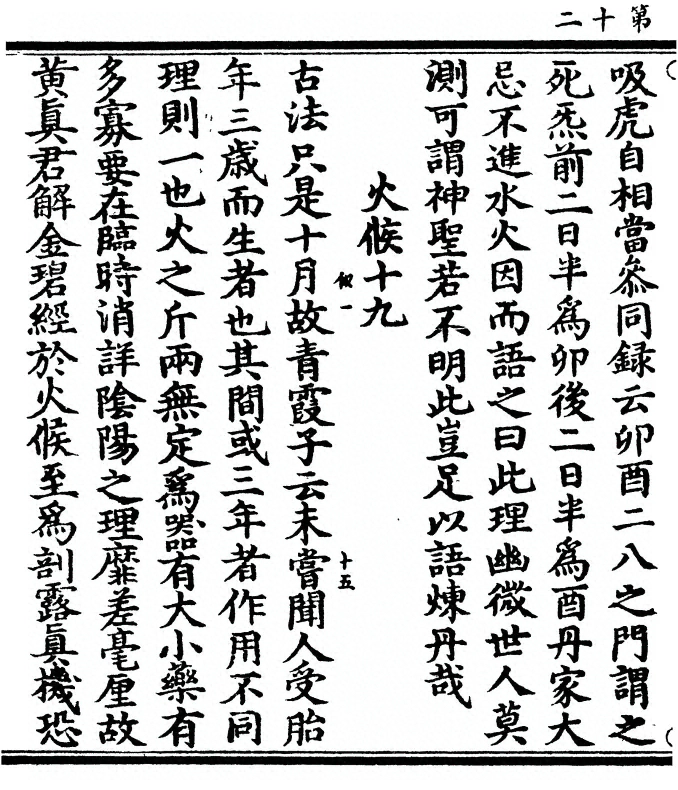 第十二
吸虎自相當叅同録云卯酉二八之門謂之
死炁前二日半爲卯後二日半爲酉丹家大
忌不進水火因而語之曰此理幽微世人莫
測可謂神聖若不明此豈足以語煉丹哉
火候十九
似一
十五
古法只是十月故青霞子云未嘗聞人受胎
年三歳而生者也其間或三年者作用不同
理則一也火之斤兩無定爲器有大小藥有
多寡要在臨時消詳陰陽之理靡差毫厘故
黄眞君解金碧經於火候至爲剖露眞機恐